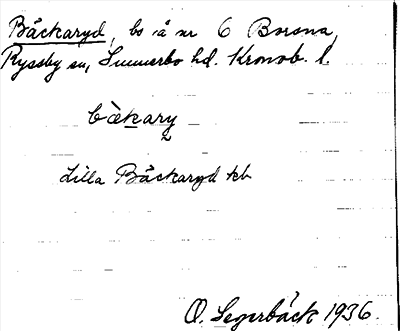 Bäckaryd, bs å nr 6 Borsna,
Ryssby sn, Sunnerbo hd. Kronob. l.
bäkary
Lilla Bäckaryd kb
O. Segerbäck 1936.